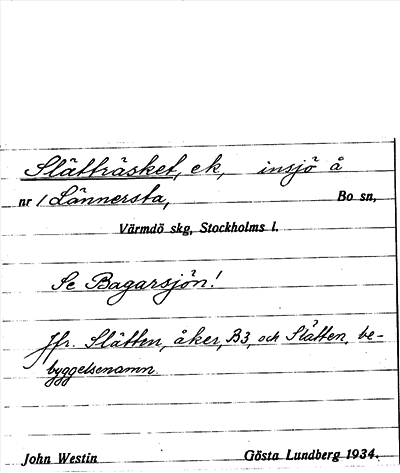 Slätträsket, ek, insjö å
nr 1 Lännersta, Bo sn,
Värmdö skg, Stockholms l.
Se Bagarsjön!
Jfr. Slätten, åker, B3, och Slätten, be-
byggelsenamn.
John Westin Gösta Lundberg 1934.